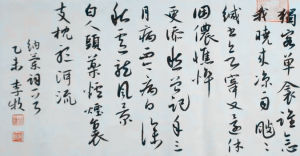 獨客單衾誰念
我曉來涼雨颼颼
緘書欲寄又還休
個儂憔悴
更添愁曾記年年三
月病而今病向深
秋盧龍風景
白人頭藥爐煙裏
支枕聽河流
納蘭詞一首
乙未 李牧